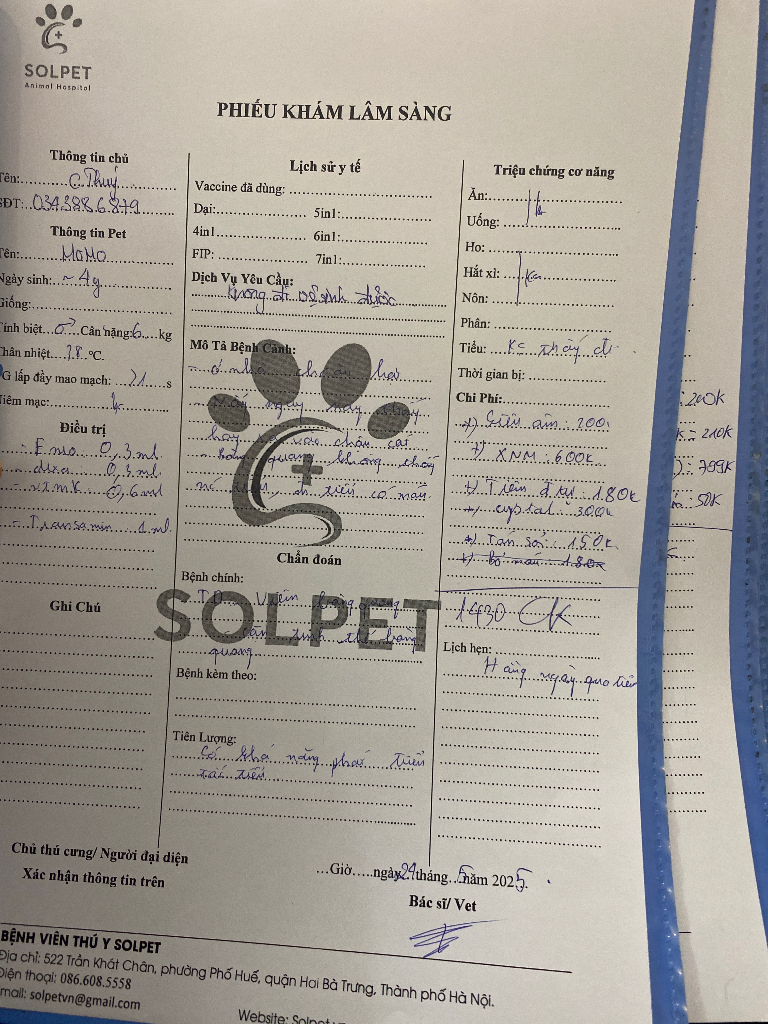 SOLPET
Animal Hospital
PHIẾU KHÁM LÂM SÀNG
Thông tin chủ
Tên: C Thuý
SĐT: 034388 6879
Thông tin Pet
Tên: MoMo
Ngày sinh: ~ 4y
Giống:
Tính biệt ♂ Cân nặng 6 kg
Thân nhiệt
°C
G lấp đầy mao mạch: >1 s
Niêm mạc:
Điều trị
- Enro 0,3 ml
- dexa 0,3 ml
- vtmK 0,6 ml
- Transamin 1 ml
Ghi Chú
Lịch sử y tế
Vaccine đã dùng:
Dại: 5in1:
4in1 6in1:
FIP: 7in1:
Dịch Vụ Yêu Cầu:
Không đi vệ sinh được
Mô Tả Bệnh Cảnh:
- ở nhà
hay
- bóng quang không
có máu
SOLPET
Chẩn đoán
Bệnh chính:
TD Viêm bàng quang
bàng
quang
Bệnh kèm theo:
Tiên Lượng:
Có khả năng phát triển
Triệu chứng cơ năng
Ăn:
Uống:
Ho:
Hắt xì:
Nôn:
Phân:
Tiểu: Ko thấy đi
Thời gian bị:
Chi Phí:
+) Siêu âm: 200k
+) XNM: 600k
+) Tiêm đ trị: 180k
+) cystal: 300k
+) Tán sỏi: 150k
+) bổ máu 180k
1430 CK
Lịch hẹn:
Hàng ngày qua tiêm
: 200K
K = 210K
): 799K
50K
Chủ thú cưng/ Người đại diện
Xác nhận thông tin trên
...Giờ.....ngày 24 tháng 5 năm 2025.
Bác sĩ/ Vet
BỆNH VIỆN THÚ Y SOLPET
Địa chỉ: 522 Trần Khát Chân, phường Phố Huế, quận Hai Bà Trưng, Thành phố Hà Nội.
Điện thoại: 086.608.5558
mail: solpetvn@gmail.com
Website: Solpet